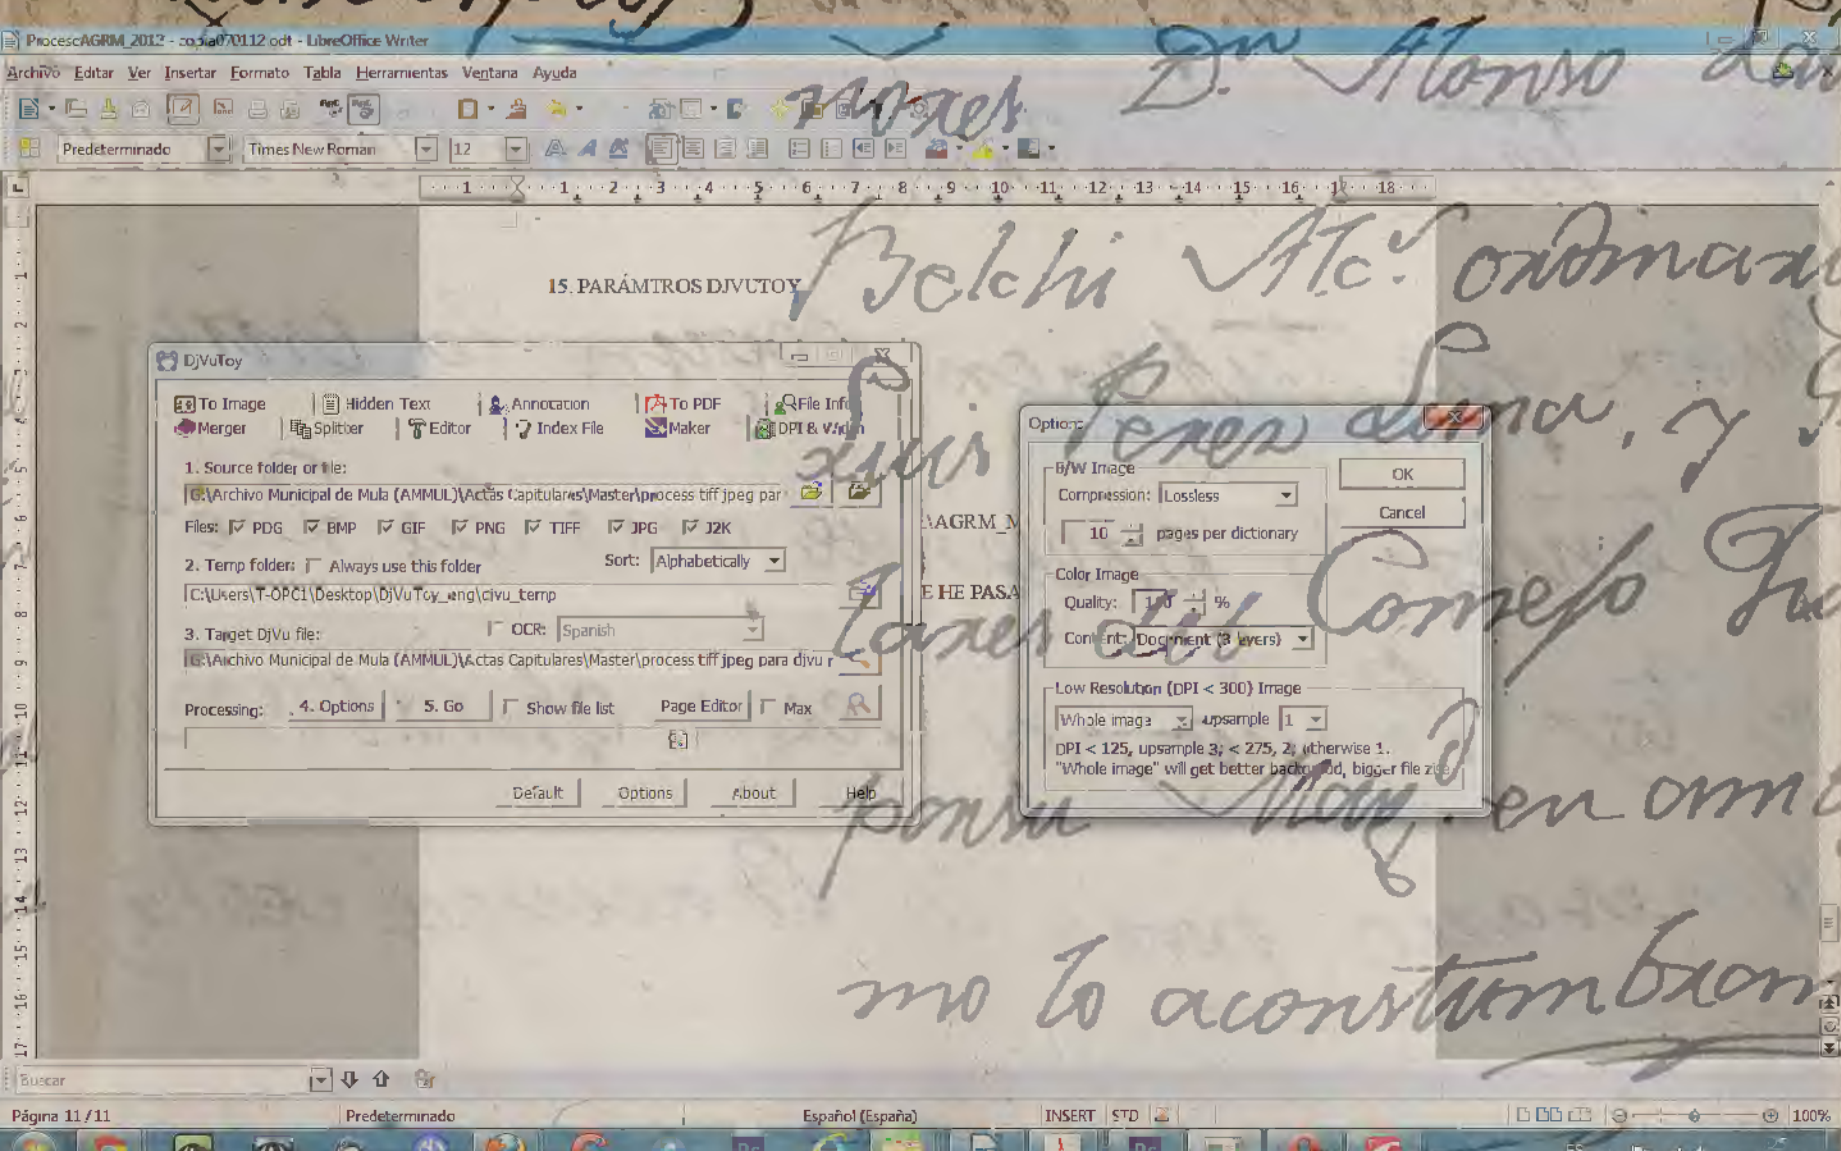 ProcescAGRM_2012 - copia070112.odt - LibreOffice Writer
Archivo Editar Ver Insertar Formato Tabla Herramientas Ventana Ayuda
Predeterminado Times New Roman 12
1 1 2 3 4 5 6 7 8 9 10 11 12 13 14 15 16 17 18
15. PARÁMTROS DJVUTOY
DjVuToy
To Image Hidden Text Annotation To PDF File Info
Merger Splitter Editor Index File Maker DPI &
1. Source folder or file:
G:\Archivo Municipal de Mula (AMMUL)\Actas Capitulares\Master\process tiff jpeg par
Files: PDG BMP GIF PNG TIFF JPG J2K
2. Temp folder: Always use this folder Sort: Alphabetically
C:\Users\T-OPC1\Desktop\DjVuToy_eng\djvu_temp
3. Target DjVu file: OCR: Spanish
G:\Archivo Municipal de Mula (AMMUL)\Actas Capitulares\Master\process tiff jpeg para djvu r
Processing: 4. Options 5. Go Show file list Page Editor Max
Default Options About Help
\AGRM_M
E HE PASA
Options
B/W Image
Compression: Lossless
10 pages per dictionary
OK
Cancel
Color Image
Quality: %
Content: Document (3 layers)
Low Resolution (DPI < 300) Image
Whole image upsample 1
DPI < 125, upsample 3; < 275, 2; otherwise 1.
"Whole image" will get better background, bigger file zise
noxes Dn Alonso
Belchi Alce. ordinari
Luis Perez Lima, y
Conzejo
en
mo lo aconstumbxan
Buscar
Página 11 / 11 Predeterminado Español (España) INSERT STD 100%
ES